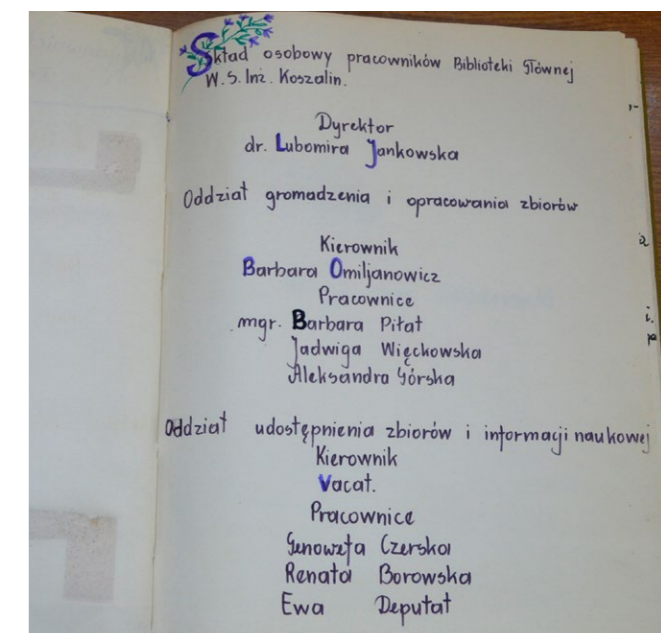 Skład osobowy pracowników Biblioteki Głównej
W.S.Inż. Koszalin.
Dyrektor
dr. Lubomira Jankowska
Oddział gromadzenia i opracowania zbiorów
Kierownik
Barbara Omiljanowicz
Pracownice
mgr. Barbara Piłat
Jadwiga Więckowska
Aleksandra Górska
Oddział udostępnienia zbiorów i informacji naukowej
Kierownik
Vacat.
Pracownice
Genowefa Czerska
Renata Borowska
Ewa Deputat